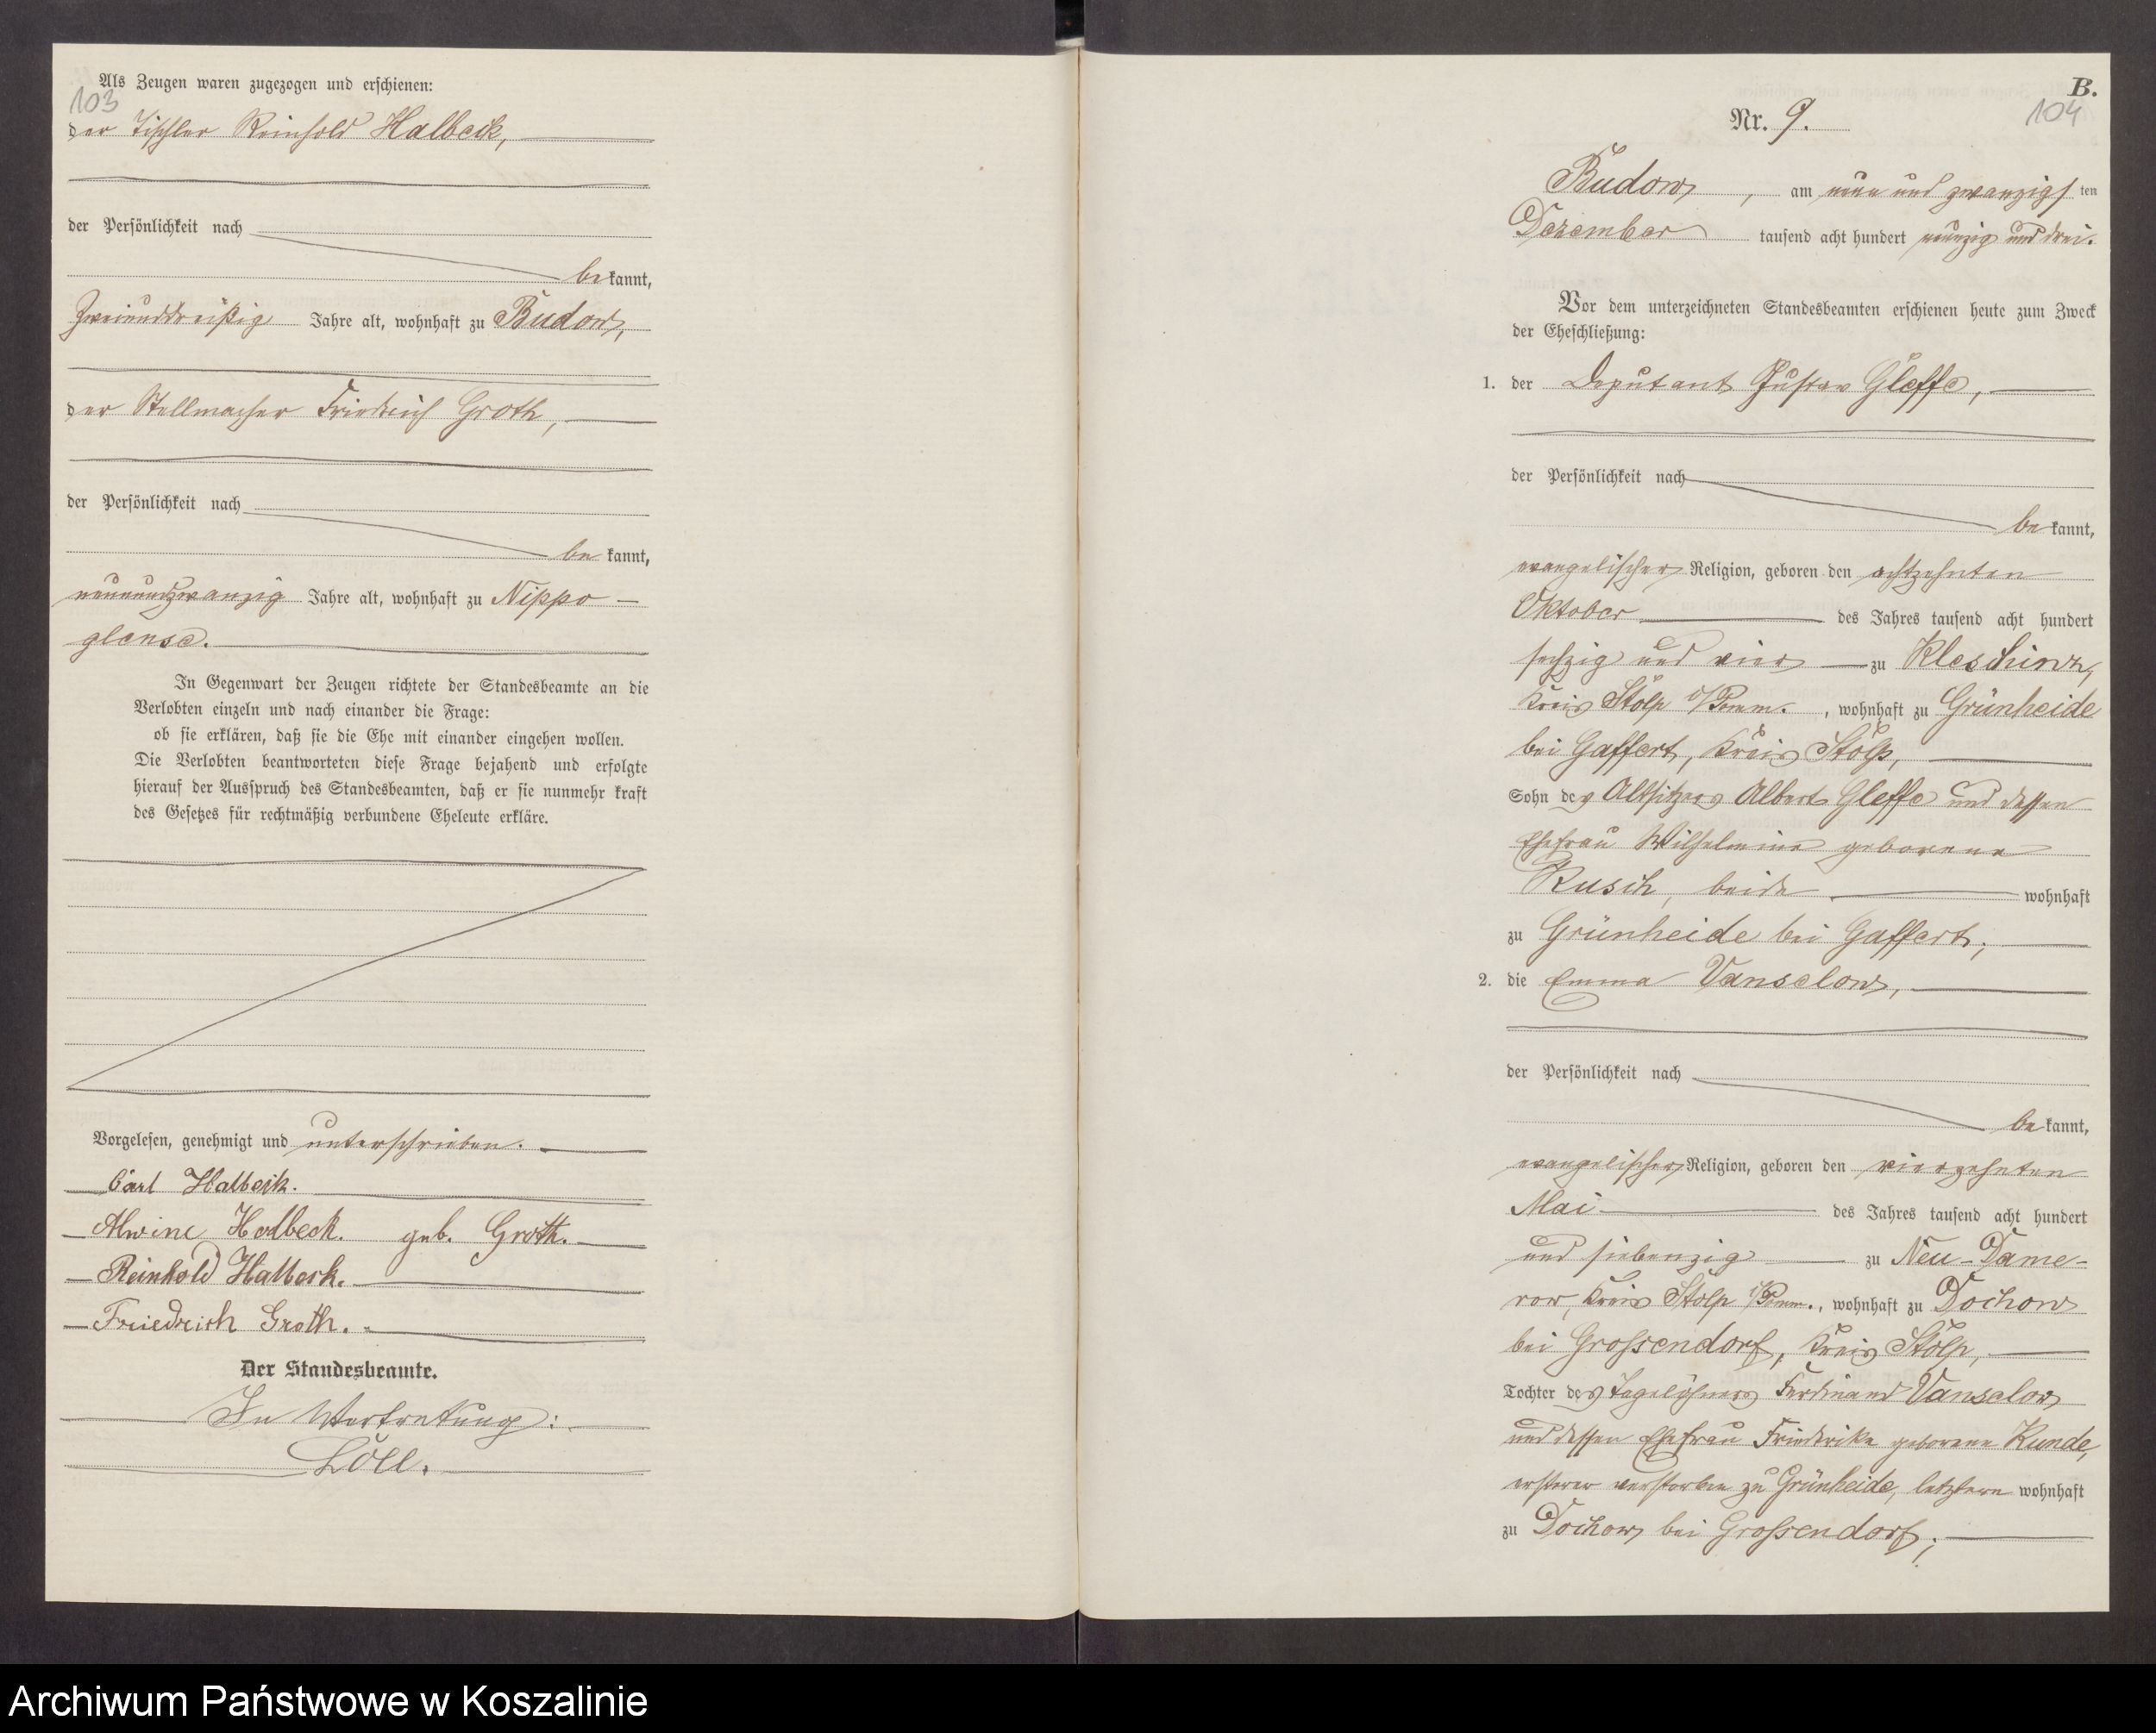 Als Zeugen waren zugezogen und erschienen:
103
der Tischler Reinhold Halbeck,
der Persönlichkeit nach
bekannt,
zweiunddreißig Jahre alt, wohnhaft zu Budow,
der Stellmacher Friedrich Groth,
der Persönlichkeit nach
be kannt,
neunundzwanzig Jahre alt, wohnhaft zu Nippo-
glense.
In Gegenwart der Zeugen richtete der Standesbeamte an die
Verlobten einzeln und nach einander die Frage:
ob sie erklären, daß sie die Ehe mit einander eingehen wollen.
Die Verlobten beantworteten diese Frage bejahend und erfolgte
hierauf der Ausspruch des Standesbeamten, daß er sie nunmehr kraft
des Gesetzes für rechtmäßig verbundene Eheleute erkläre.
Vorgelesen, genehmigt und unterschrieben.
Carl Halbeck.
Alwine Halbeck. geb. Groth.
Reinhold Halbeck.
Friedrich Groth.
Der Standesbeamte.
In Vertretung:
Löll.
B.
104
Nr. 9.
Budow, am neun und zwanzigsten
Dezember tausend acht hundert neunzig und drei.
Vor dem unterzeichneten Standesbeamten erschienen heute zum Zweck
der Eheschließung:
1. der Deputant Gustav Gleffe,
der Persönlichkeit nach
be kannt,
evangelischer Religion, geboren den achtzehnten
Oktober des Jahres tausend acht hundert
sechzig und vier zu Kleschinz,
Kreis Stolp i/Pomm., wohnhaft zu Grünheide
bei Gaffert, Kreis Stolp,
Sohn des Altsitzers Albert Gleffe und dessen
Ehefrau Wilhelmine geborene
Rusch, beide wohnhaft
zu Grünheide bei Gaffert;
2. die Emma Vanselow,
der Persönlichkeit nach
be kannt,
evangelischer Religion, geboren den vierzehnten
Mai des Jahres tausend acht hundert
und siebenzig zu Neu-Dame-
row, Kreis Stolp i/Pomm., wohnhaft zu Dochow
bei Grossendorf, Kreis Stolp,
Tochter des Tagelöhners Ferdinand Vanselow
und dessen Ehefrau Friederike geborene Kunde,
ersterer verstorben zu Grünheide, letztere wohnhaft
zu Dochow bei Grossendorf;
Archiwum Państwowe w Koszalinie